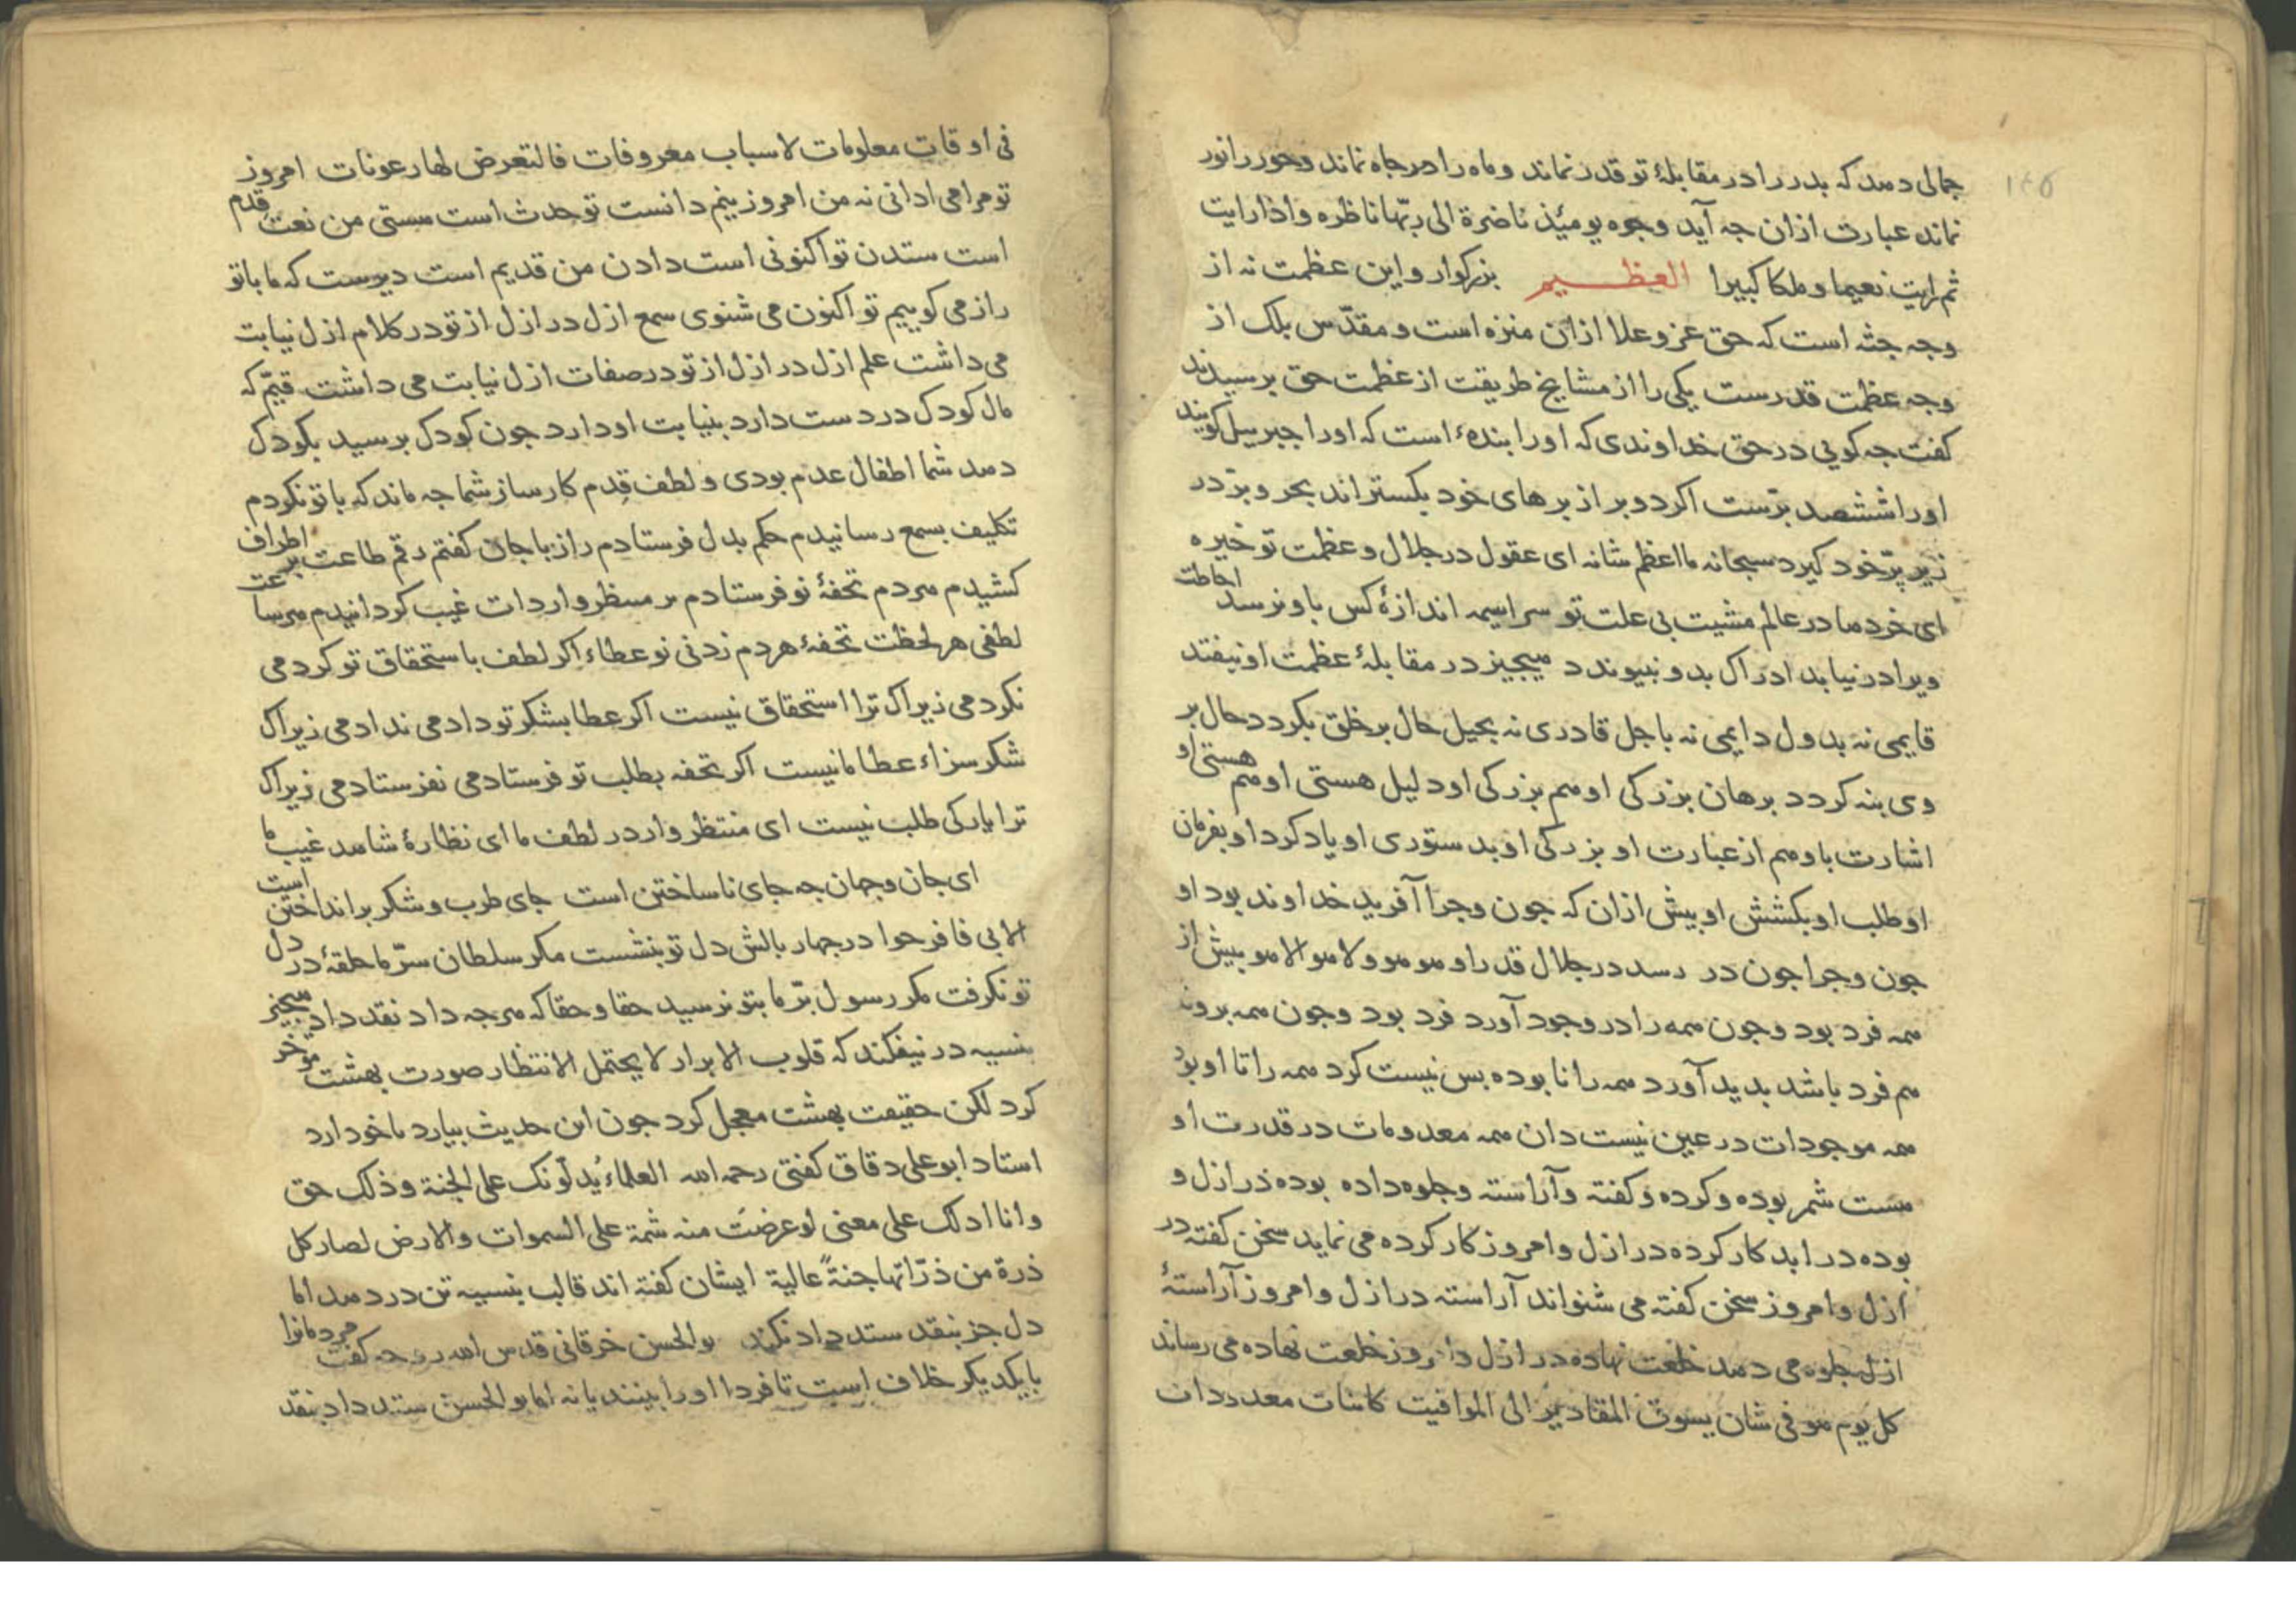 ۱۴۵
جمالی دهد که بدر را در مقابلهٔ تو قدر نماند و ماه را در جاه نماند و حور را نور
نماند عبارت ازان جه آید وجوه یومئذ ناضرة الی ربّها ناظره و اذا رایت
ثم رایت نعیما و ملکا کبیرا العظیم بزرکوار و این عظمت نه از
وجه جثه است که حق عز و علا ازان منزه است و مقدّس بلک از
وجه عظمت قدرست یکی را از مشایخ طریقت از عظمت حق برسیدند
کفت جه کویی در حق خداوندی که او را بندهٔ است که او را جبریل کویند
او را ششصد برّست اکر دو بر از برهای خود بکستراند بحر و برّ در
زیر پرّ خود کیرد سبحانه ما اعظم شانه ای عقول در جلال و عظمت تو خیره
ای خردها در عالم مشیت بی علت تو سراسیمه اندازهٔ کس باو نرسد احاطت
ویرا در نیابد ادراک بدو نبیوندد هیجیز در مقابلهٔ عظمت او نیفتد
قایمی نه بدول دایمی نه باجل قادری نه بحیل حال بر خلق بکردد حال بر
وی بنه کردد برهان بزرکی او هم بزرکی او دلیل هستی او هم هستی او
اشارت باو هم از عبارت او بزرکی او بدستوری او یاد کرد او بفرمان
او طلب او بکشش او بیش ازان که جون و جرا آفرید خداوند بود او
جون و جرا جون در رسد در جلال قدر او هو هو و لا هو الا هو بیش از
همه فرد بود و جون همه را در وجود آورد فرد بود و جون همه بروند
هم فرد باشد بدید آورد همه را نا بوده بس نیست کرد همه را تا او بود
همه موجودات در عین نیست دان همه معدومات در قدرت او
هست شمر بوده و کرده و کفته و آراسته و جلوه داده بوده در ازل و
بوده در ابد کار کرده در ازل و امروز کار کرده می نماید سخن کفته در
ازل و امروز سخن کفته می شنواند آراسته در ازل و امروز آراستهٔ
ازل جلوه می دهد خلعت نهاده در ازل و امروز خلعت نهاده می رساند
کل یوم هو فی شان یسوق المقادیر الی المواقیت کاینات معدودات
فی اوقات معلومات لا سباب معروفات فالتعرض لها رعونات امروز
تو مرا می ادانی نه من امروز بنیم دانست تو حدث است هستی من نعت قدم
است ستدن تو اکنونی است دادن من قدیم است دیرست که ما با تو
راز می کوییم تو اکنون می شنوی سمع ازل در ازل از تو در کلام ازل نیابت
می داشت علم ازل در ازل از تو در صفات ازل نیابت می داشت قیّم که
مال کودک در دست دارد بنیابت او دارد جون کودک برسید بکودک
دهد شما اطفال عدم بودی و لطف قِدم کارساز شما جه ماند که با تو نکردم
تکلیف بسمع رسانیدم حکم بدل فرستادم راز با جان کفتم رقم طاعت بر اطراف
کشیدم هر دم تحفهٔ نو فرستادم بر منظر واردات غیب کردانیدم هر ساعت
لطفی هر لحظت تحفهٔ هر دم زدنی نو عطاء اکر لطف باستحقاق تو کردمی
نکردمی زیراک ترا استحقاق نیست اکر عطا بشکر تو دادمی ندادمی زیراک
شکر سزاء عطا ما نیست اکر تحفه بطلب تو فرستادمی نفرستادمی زیراک
ترا یارکی طلب نیست ای منتظر وارد در لطف ما ای نظارهٔ شاهد غیب ما
ای جان و جهان جه جای ناساختن است جای طرب و شکر بر انداختن است
الا بی فافرحوا در جهار بالش دل تو بنشست مکر سلطان سرّ ما حلقهٔ در دل
تو نکرفت مکر رسول برّ ما بتو نرسید حقا و حقا که هرجه داد نقد داد هیجیز
بنسیه در نیفکند که قلوب الابرار لا یحتمل الانتظار صورت بهشت موخر
کرد لکن حقیقت بهشت معجل کرد جون این حدیث بیارد ما خود دارد
استاد ابو علی دقاق کفتی رحمه الله العلماء یُدلّونک علی الجنة و ذلک حق
و انا ادلک علی معنی لو عرضَت منه شمة علی السموات و الارض لصار کل
ذرة من ذرّاتها جنةً عالیة ایشان کفته اند قالب بنسیه تن در دهد اما
دل جز بنقد ستد و داد نکند بو الحسن خرقانی قدس الله روحه کفت مردمانرا
با یکدیکر خلاف است تا فردا او را بینند یا نه اما بو الحسن ستد داد بنقد